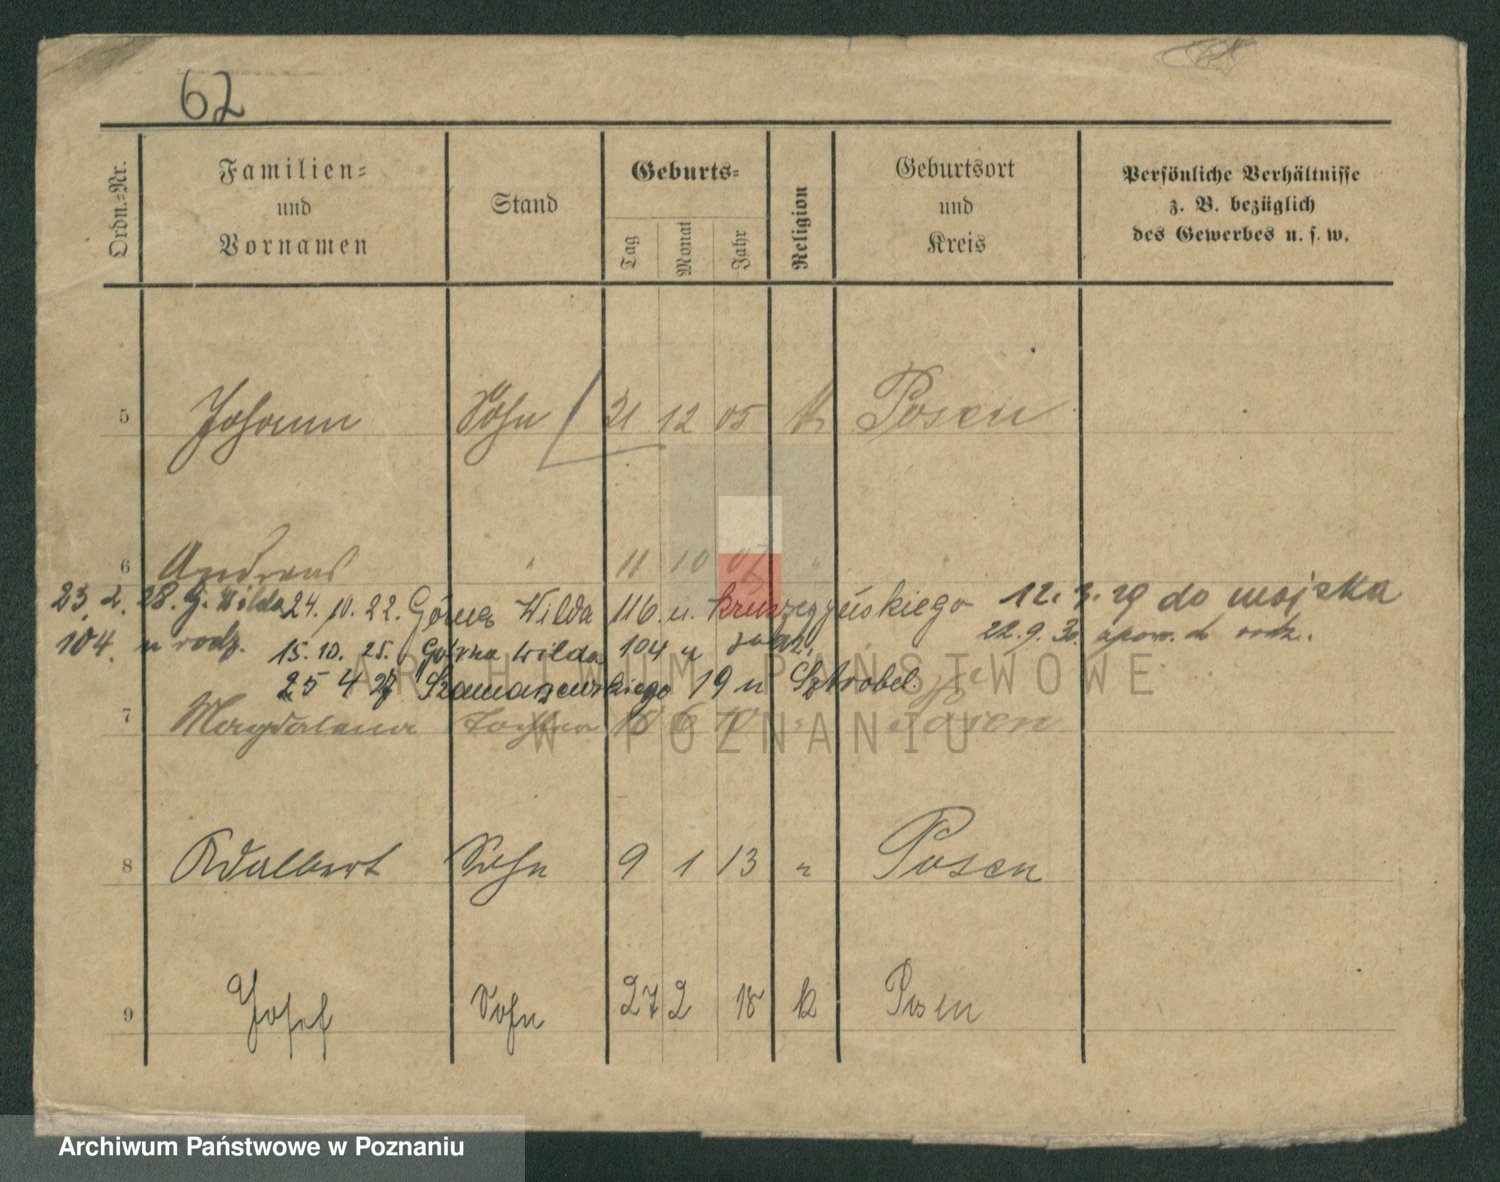 62
Ordn.-Nr.
Familien-
und
Vornamen
Stand
Geburts-
Tag
Monat
Jahr
Religion
Geburtsort
und
Kreis
Persönliche Verhältnisse
z. B. bezüglich
des Gewerbes u. s. w.
5 Johann Sohn 31 12 05 k Posen
6 Andreas " 11 10 07 " "
23. 2. 28. G. Wilda 24. 10. 22. Górna Wilda 116. u. 12. 3. 29 do wojska
104. u rodz. 15. 10. 25. Górna Wilda 104 u 22. 9. 30.
25 4 27 Szamarzewskiego 19 u Sztrobel.
7 Magdalena Tochter 18 6 10 " Posen
8 Adalbert Sohn 9 1 13 " Posen
9 Josef Sohn 27 2 18 k Posen
ARCHIWUM PAŃSTWOWE
W POZNANIU
Archiwum Państwowe w Poznaniu